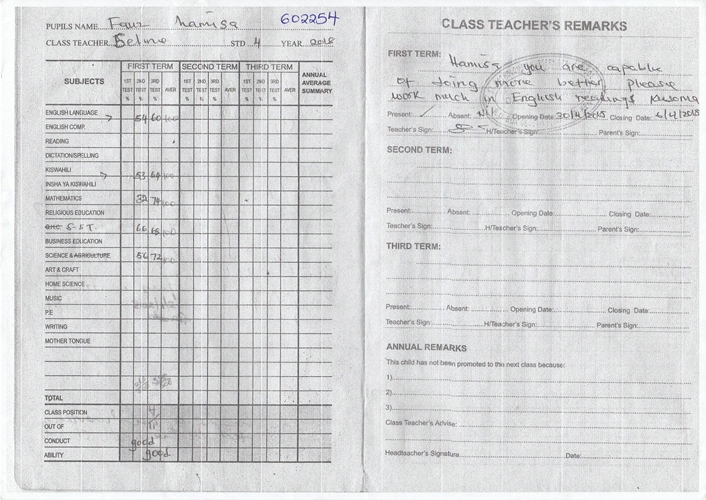 PUPILS NAME Faur hamisa 602254
CLASS TEACHER. Selino STD 4 YEAR 2015
SUBJECTS FIRST TERM SECOND TERM THIRD TERM ANNUAL AVERAGE SUMMARY
1ST TEST % 2ND TEST % 3RD TEST % AVER 1ST TEST % 2ND TEST % 3RD TEST % AVER 1ST TEST % 2ND TEST % 3RD TEST % AVER
ENGLISH LANGUAGE 54 60 100
ENGLISH COMP.
READING
DICTATION/SPELLING
KISWAHILI 53 64 100
INSHA YA KISWAHILI
MATHEMATICS 32 74 100
RELIGIOUS EDUCATION
S.S.T. 66 68 100
BUSINESS EDUCATION
SCIENCE & AGRICULTURE 56 72 100
ART & CRAFT
HOME SCIENCE
MUSIC
P.E
WRITING
MOTHER TONGUE
TOTAL
CLASS POSITION 4
OUT OF
CONDUCT good
ABILITY good
CLASS TEACHER'S REMARKS
FIRST TERM: Hamisa you are capable
of doing more better please
work much in English readings
Present: Absent: Nil Opening Date: 30/4/2015 Closing Date: 4/4/2015
Teacher's Sign: H/Teacher's Sign: Parent's Sign:
SECOND TERM:
Present: Absent: Opening Date: Closing Date:
Teacher's Sign: H/Teacher's Sign: Parent's Sign:
THIRD TERM:
Present: Absent: Opening Date: Closing Date:
Teacher's Sign: H/Teacher's Sign: Parent's Sign:
ANNUAL REMARKS
This child has not been promoted to the next class because:
1)
2)
3)
Class Teacher's Advise:
Headteacher's Signature Date: